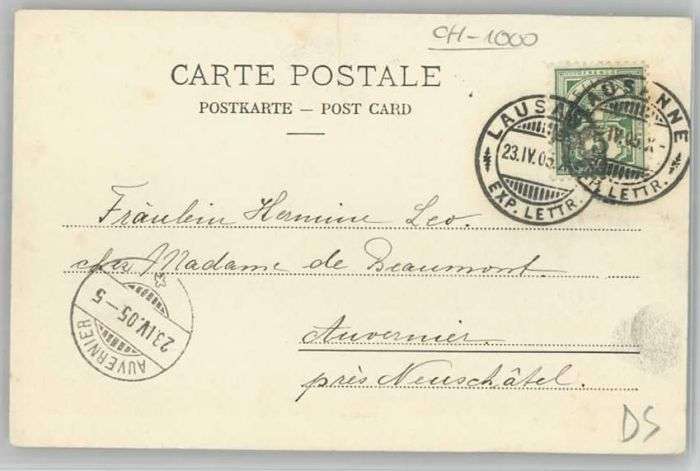 CH-1000
CARTE POSTALE
POSTKARTE — POST CARD
LAUSANNE
23.IV.05.
EXP. LETTR.
LAUSANNE
IV.05.X-
EXP. LETTR.
Fräulein Hermine Leo.
chez Madame de Beaumont.
Auvernier.
près Neuschâtel.
23 IV.05-5
AUVERNIER
DS